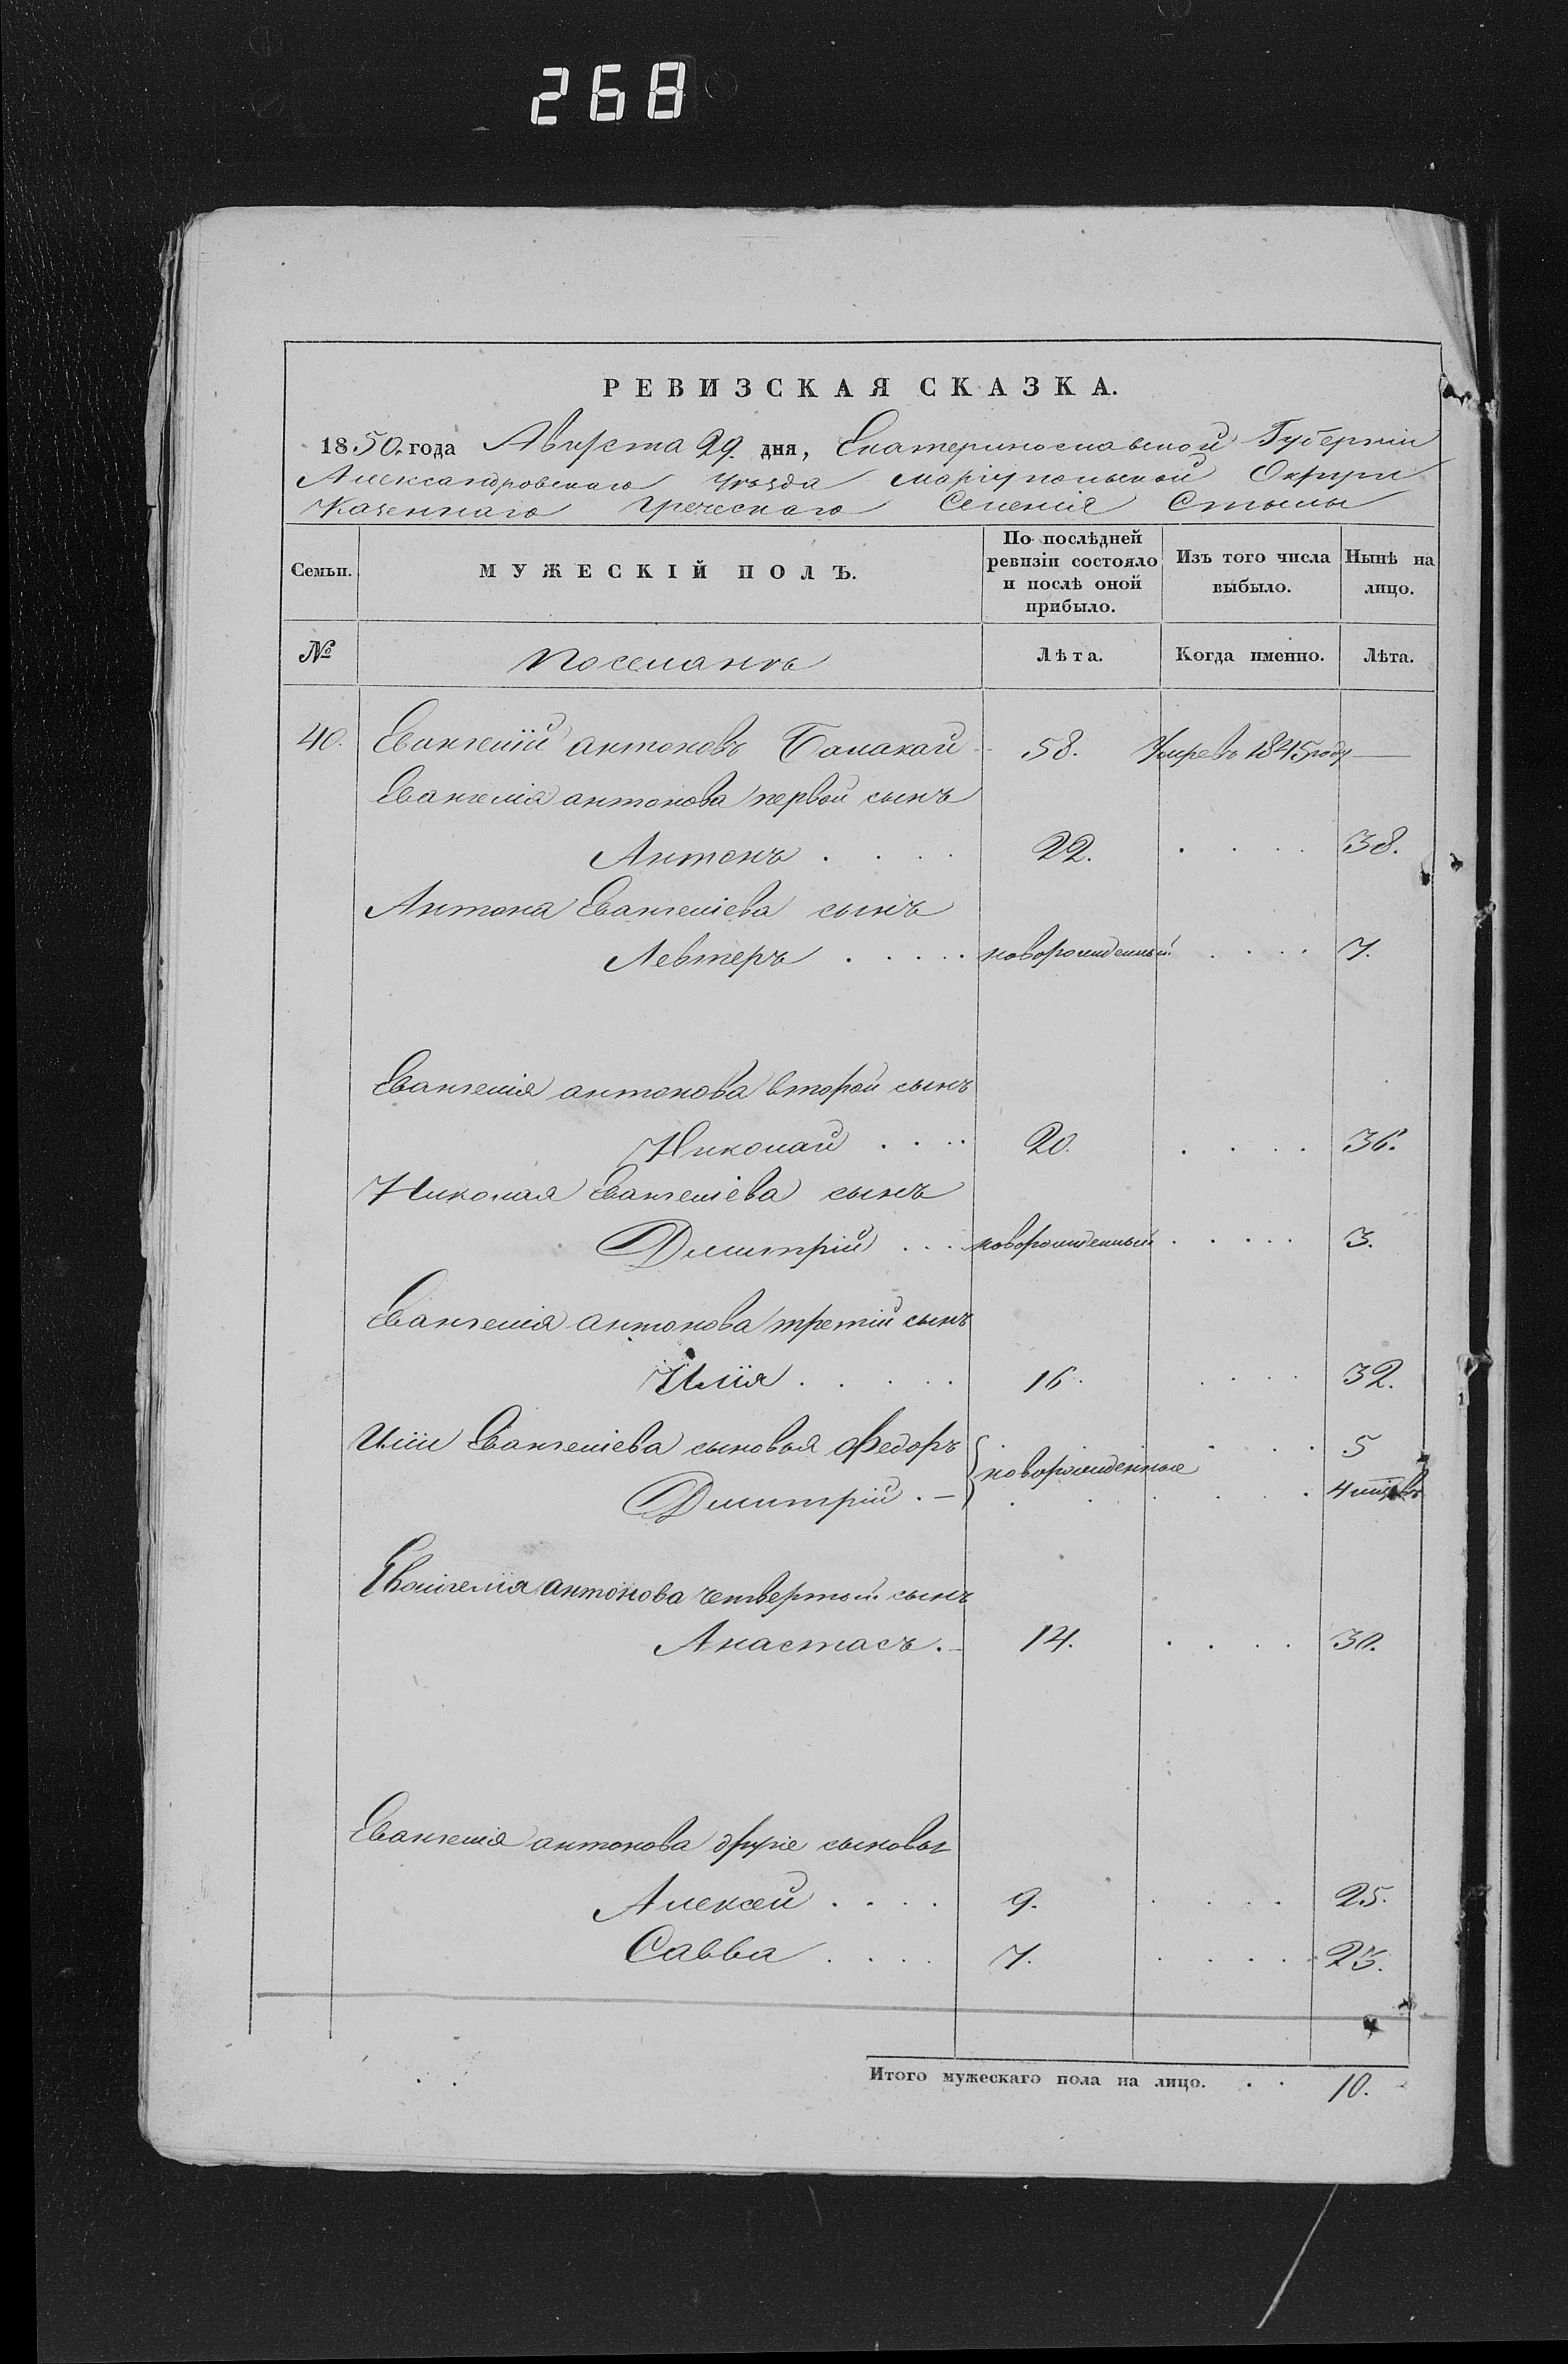 268
РЕВИЗСКАЯ СКАЗКА.
1850. года Августа 29. дня, Екатеринославской Губерніи
Александровскаго Уѣзда Маріупольской Округи
Казеннаго Греческаго Селенія Стылы
Семьи. МУЖЕСКІЙ ПОЛЪ. По послѣдней ревизіи состояло и послѣ оной прибыло. Изъ того числа выбыло. Нынѣ на лицо.
№ Поселянъ Лѣта. Когда именно. Лѣта.
40. Евангелій антоновъ 58. Умре въ 1845 году —
Евангелія антонова первой сынъ
Антонъ . . . . 22. . . . . 38.
Антона Евангеліева сынъ
Левтеръ . . . . . новорожденный . . . . 7.
Евангелія антонова второй сынъ
Николай . . . . 20. . . . . 36.
Николая Евангеліева сынъ
Дмитрій . . . новорожденный . . . . . 3.
Евангелія антонова третій сынъ
Илія . . . . . 16. . . . . 32.
Иліи Евангеліева сыновья Федоръ 5
новорожденные
Дмитрій . — 4
Евангелія антонова четвертой сынъ
Анастасъ . — 14. . . . . 30.
Евангелія антонова другіе сыновья
Алексей . . . . 9. . . . . 25.
Савва . . . . 7. . . . . 23.
Итого мужескаго пола на лицо. . . 10.